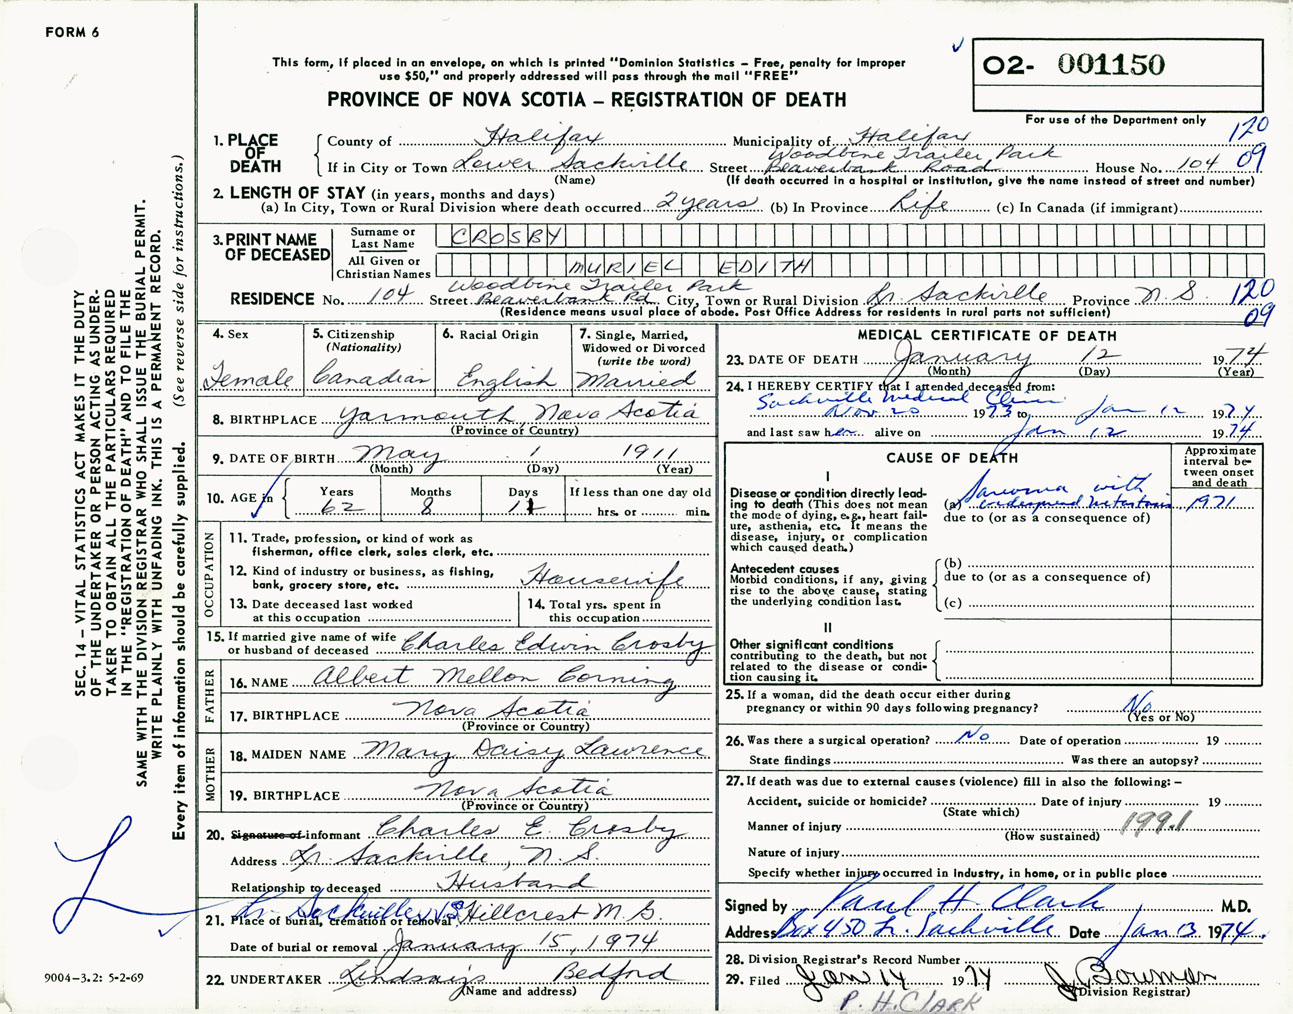 FORM 6
This form, if placed in an envelope, on which is printed "Dominion Statistics – Free, penalty for improper
use $50," and properly addressed will pass through the mail "FREE"
PROVINCE OF NOVA SCOTIA – REGISTRATION OF DEATH
02- 001150
For use of the Department only
120
09
1. PLACE OF DEATH
County of Halifax Municipality of Halifax
Woodbine Trailer Park
If in City or Town Lower Sackville Street Beaverbank Road House No. 104
(Name) (If death occurred in a hospital or institution, give the name instead of street and number)
2. LENGTH OF STAY (in years, months and days)
(a) In City, Town or Rural Division where death occurred 2 years (b) In Province Life (c) In Canada (if immigrant)
3. PRINT NAME OF DECEASED
Surname or Last Name CROSBY
All Given or Christian Names MURIEL EDITH
Woodbine Trailer Park
RESIDENCE No. 104 Street Beaverbank Rd. City, Town or Rural Division Lr. Sackville Province N.S. 120
(Residence means usual place of abode. Post Office Address for residents in rural parts not sufficient) 09
4. Sex Female
5. Citizenship (Nationality) Canadian
6. Racial Origin English
7. Single, Married, Widowed or Divorced (write the word) Married
8. BIRTHPLACE Yarmouth, Nova Scotia
(Province or Country)
9. DATE OF BIRTH May 1 1911
(Month) (Day) (Year)
10. AGE in Years 62 Months 8 Days 11 If less than one day old hrs. or min.
OCCUPATION
11. Trade, profession, or kind of work as
fisherman, office clerk, sales clerk, etc.
12. Kind of industry or business, as fishing,
bank, grocery store, etc. Housewife
13. Date deceased last worked
at this occupation
14. Total yrs. spent in
this occupation
15. If married give name of wife
or husband of deceased Charles Edwin Crosby
FATHER
16. NAME Albert Mellon Corning
17. BIRTHPLACE Nova Scotia
(Province or Country)
MOTHER
18. MAIDEN NAME Mary Daisy Lawrence
19. BIRTHPLACE Nova Scotia
(Province or Country)
20. Signature of informant Charles E. Crosby
Address Lr. Sackville, N.S.
Relationship to deceased Husband
Lr. Sackville N.S. Hillcrest M.G.
21. Place of burial, cremation or removal
Date of burial or removal January 15, 1974
22. UNDERTAKER Lindsay's Bedford
(Name and address)
MEDICAL CERTIFICATE OF DEATH
23. DATE OF DEATH January 12 1974
(Month) (Day) (Year)
24. I HEREBY CERTIFY that I attended deceased from:
Sackville Medical Clinic
Nov 20 1973 to Jan 12 1974
and last saw her alive on Jan 12 1974
CAUSE OF DEATH
Approximate interval between onset and death
I
Disease or condition directly lead-
ing to death (This does not mean
the mode of dying, e.g., heart fail-
ure, asthenia, etc. It means the
disease, injury, or complication
which caused death.)
(a) Sarcoma with
widespread metastasis 1971
due to (or as a consequence of)
Antecedent causes
Morbid conditions, if any, giving
rise to the above cause, stating
the underlying condition last.
(b)
due to (or as a consequence of)
(c)
II
Other significant conditions
contributing to the death, but not
related to the disease or condi-
tion causing it.
25. If a woman, did the death occur either during
pregnancy or within 90 days following pregnancy? No
(Yes or No)
26. Was there a surgical operation? No Date of operation 19
State findings Was there an autopsy?
27. If death was due to external causes (violence) fill in also the following: –
Accident, suicide or homicide? Date of injury 19
(State which)
Manner of injury 199.1
(How sustained)
Nature of injury
Specify whether injury occurred in Industry, in home, or in public place
Signed by Paul H. Clark M.D.
Address Box 450 Lr. Sackville Date Jan 13 1974.
28. Division Registrar's Record Number
29. Filed Jan 14 1974 J. Bowman
(Division Registrar)
P. H. CLARK
SEC. 14 – VITAL STATISTICS ACT MAKES IT THE DUTY
OF THE UNDERTAKER OR PERSON ACTING AS UNDER-
TAKER TO OBTAIN ALL THE PARTICULARS REQUIRED
IN THE "REGISTRATION OF DEATH" AND TO FILE THE
SAME WITH THE DIVISION REGISTRAR WHO SHALL ISSUE THE BURIAL PERMIT.
WRITE PLAINLY WITH UNFADING INK. THIS IS A PERMANENT RECORD.
Every item of information should be carefully supplied. (See reverse side for instructions.)
9004-3.2: 5-2-69